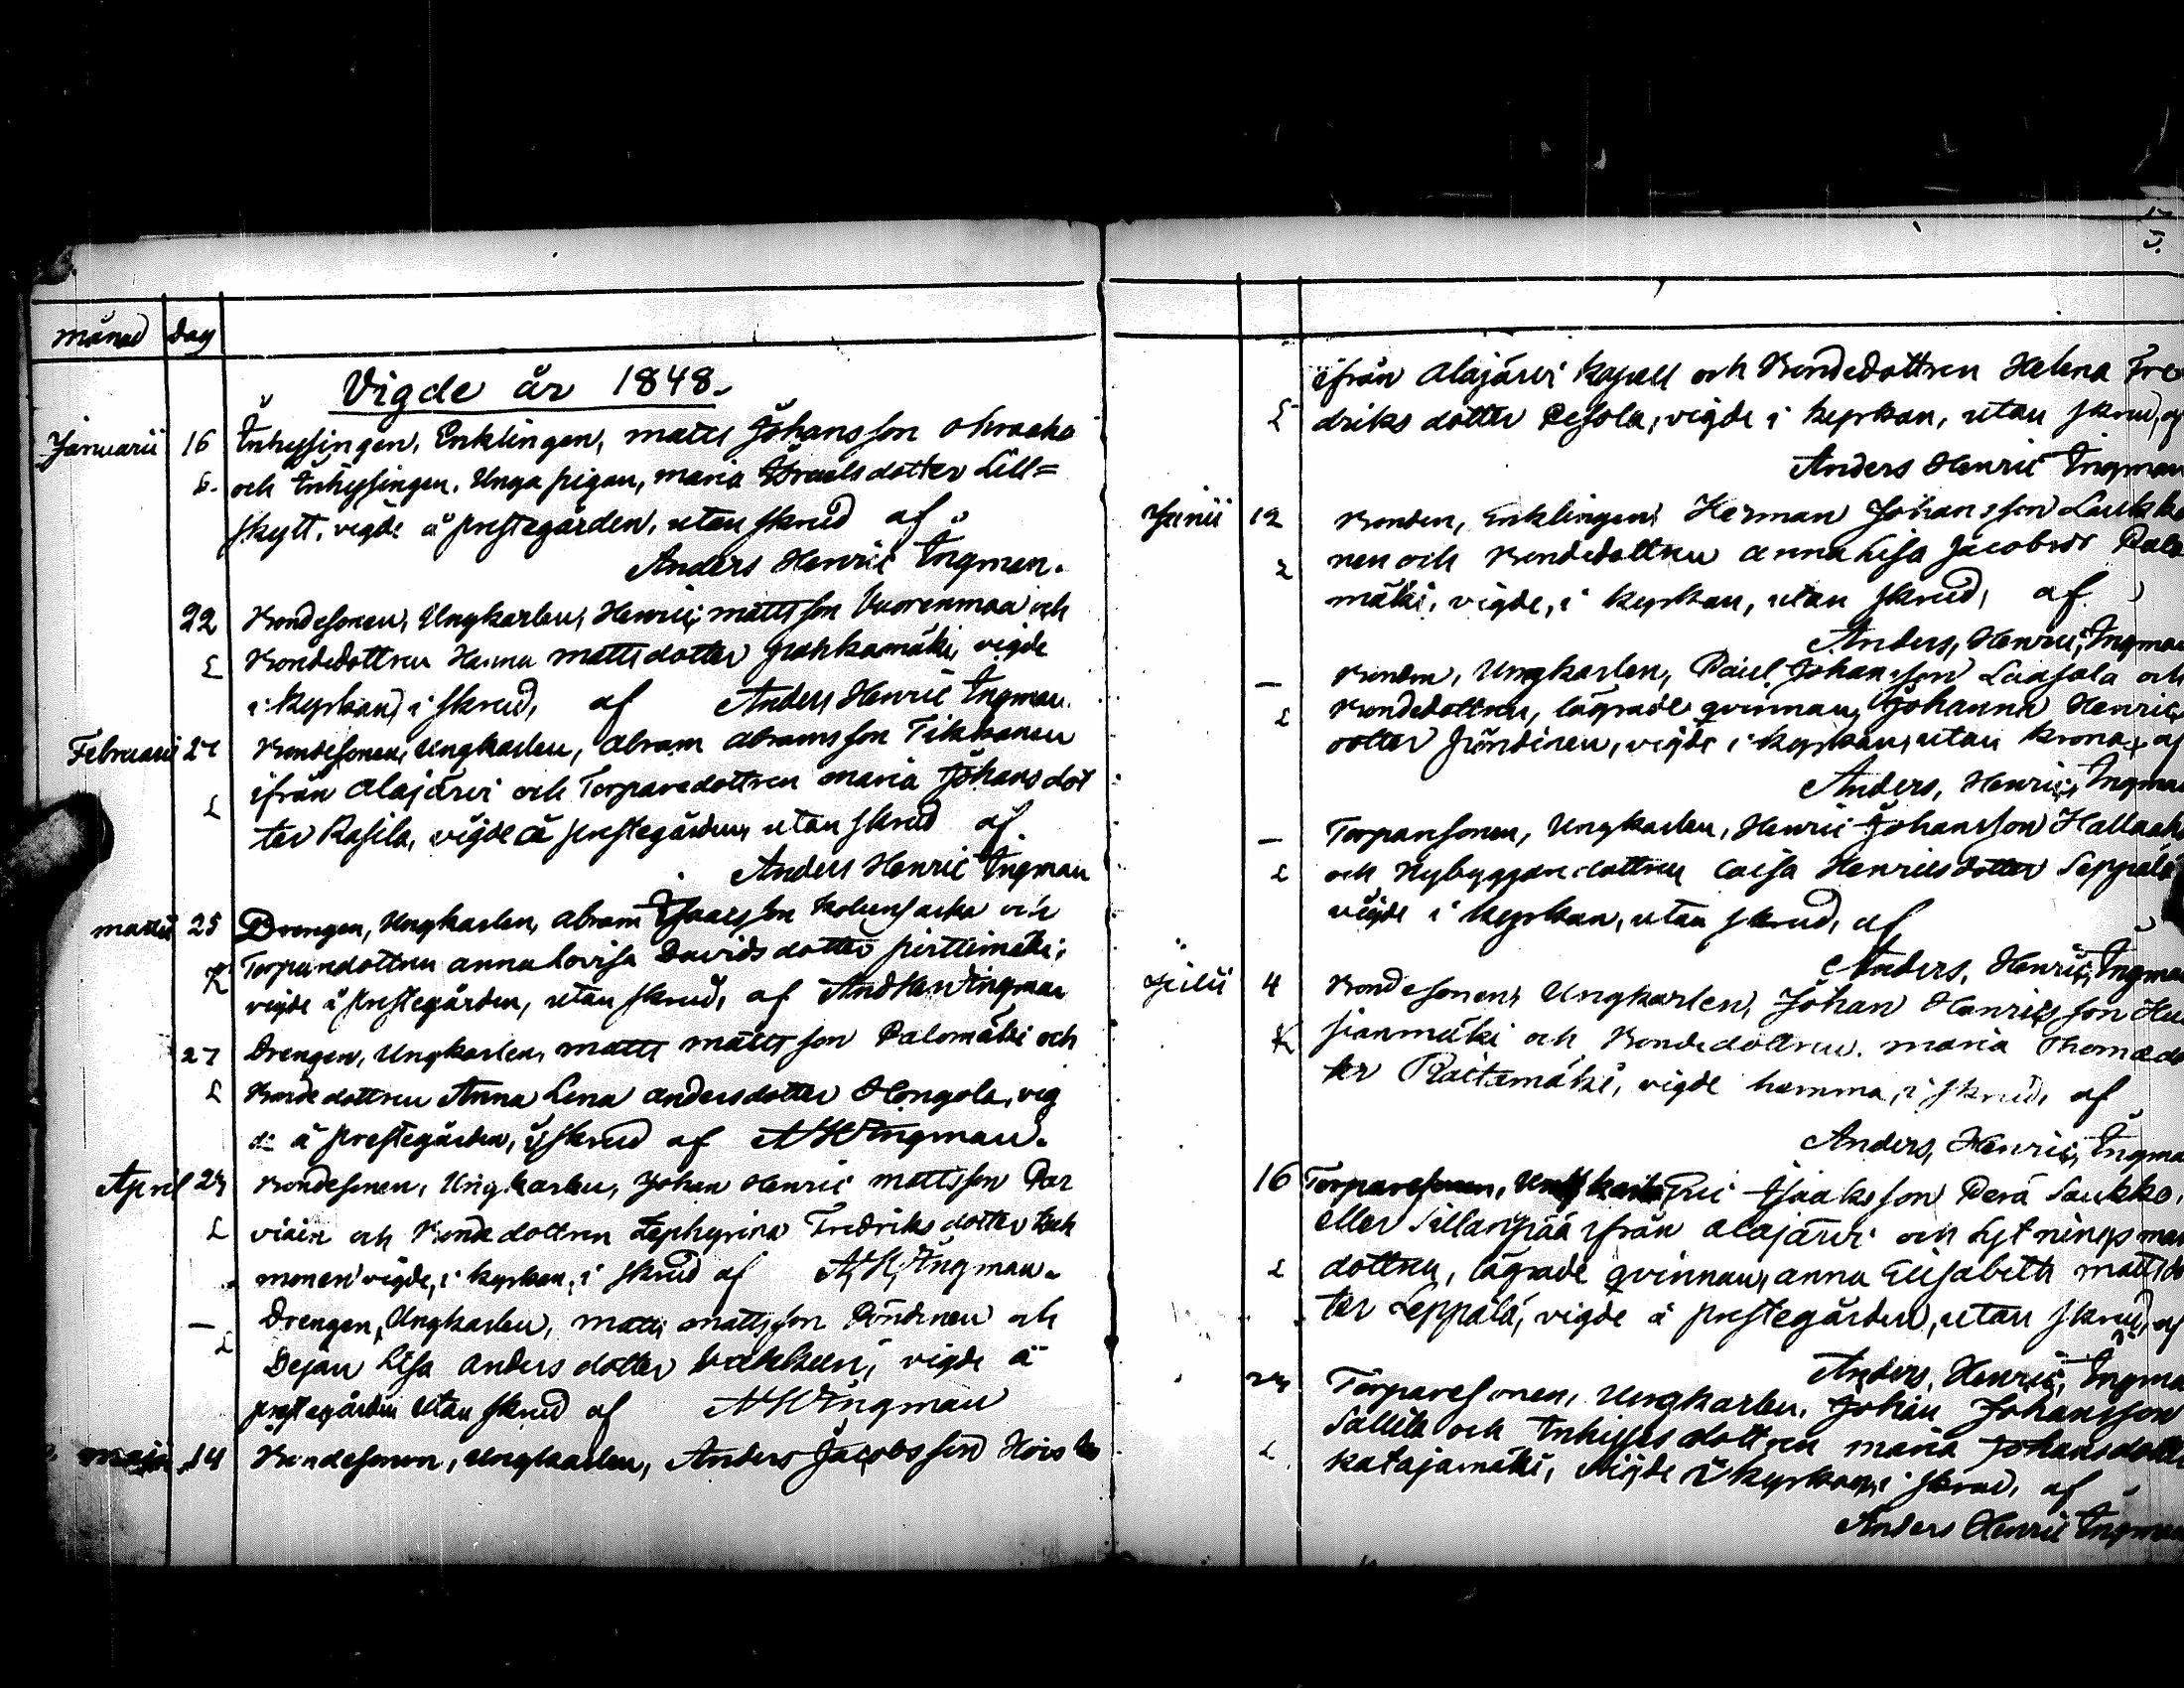 månad dag
Vigde år 1848.
Januarii 16 Inhysingen, Enklingen, Matts Johansson Ohraaho
L. och Inhysingen, Unga pigan, Maria Israelsdotter Lill=
skytt, vigde å prestegården, utan skrud af
Anders Henric Ingman.
22 Bondesonen, Ungkarlen, Henric Mattsson Vuorenmaa och
L Bondedottren Hanna Mattsdotter vigde
i kyrkan, i skrud, af Anders Henric Ingman.
Februarii 27 Bondesonen, Ungkarlen, Abram Abramsson Tikkanen
ifrån Alajärvi och Torparedottren Maria Johansdot
L ter Rasila, vigde å prestegården, utan skrud af.
Anders Henric Ingman
Martii 25 Drengen, Ungkarlen, Abram Isaacsson och
K Torparedottren Anna Lovisa Davidsdotter Pirttimäki,
vigde å prestegården, utan skrud, af And Hen Ingman
27 Drengen, Ungkarlen, Matts Mattsson Palomäki och
L Bondedottren Anna Lena Andersdotter Hongola, vig
de å prestegården, i skrud af AH Ingman.
April 24 Bondesonen, Ungkarlen, Johan Henric Mattsson Par
L viain och Bondedottren Zephyrina Fredriksdotter
monen vigde, i kyrkan, i skrud af A, H, Ingman.
— Drengen, Ungkarlen, Matts Mattsson Pöndinen och
L Dejan Lisa Andersdotter vigde å
prestegården utan skrud af AH Ingman
Maji 14 Bondesonen, Ungkarlen, Anders Jacobsson
ifrån Alajärvi Kapell och Bondedottren Helena Fre
L driksdotter Pesola, vigde i kyrkan, utan skrud, af
Anders Henric Ingman
Junii 12 Bonden, Enklingen, Herman Johansson Laukka
L nen och Bondedottren Anna Lisa Jacobsdr Palo
mäki, vigde, i kyrkan, utan skrud, af
Anders, Henric, Ingman
— Bonden, Ungkarlen, Paul Johansson Lassila och
L Bondedottren, lägrade qvinnan, Johanna Henrics
dotter Pöndinen, vigde i kyrkan, utan krona, af
Anders, Henric, Ingman
— Torparesonen, Ungkarlen, Henric Johansson
L och Nybyggaredottren Caisa Henricsdotter Seppälä
vigde i kyrkan, utan skrud, af
Anders, Henric, Ingman
Julii 4 Bondesonen, Ungkarlen, Johan Henricsson
K och Bondedottren, Maria Thomædot
ter Raitamäki, vigde hemma, i skrud, af
Anders, Henric, Ingman
16 Torparesonen, Isaaksson Perä Saukko,
eller Sillanpää ifrån Alajärvi och
L dottren, lägrade qvinnan, Anna Elisabeth Mattsdot
ter Leppälä, vigde å prestegården, utan skrud, af
Anders, Henric, Ingman
24 Torparesonen, Ungkarlen, Johan Johansson
och Inhysesdottren Maria Johansdotter
L Katajamäki, vigde i kyrkan, i skrud, af
Anders Henric Ingman